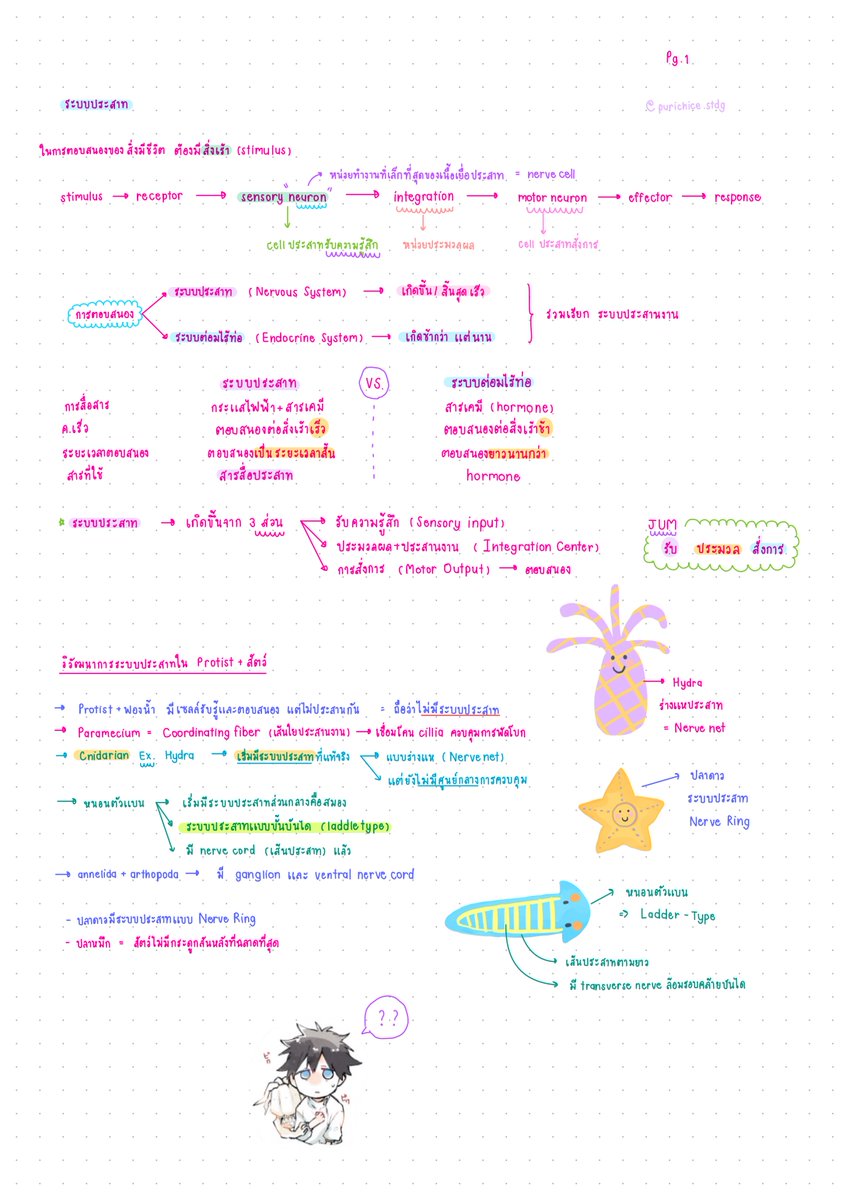 Pg.1
ระบบประสาท
@purichice.stdg
ในการตอบสนองของสิ่งมีชีวิต ต้องมีสิ่งเร้า (stimulus)
หน่วยทำงานที่เล็กที่สุดของเนื้อเยื่อประสาท = nerve cell
stimulus → receptor → sensory "neuron" → integration → motor neuron → effector → response
cell ประสาทรับความรู้สึก หน่วยประมวลผล cell ประสาทสั่งการ
การตอบสนอง
ระบบประสาท (Nervous System) → เกิดขึ้น/สิ้นสุดเร็ว
ระบบต่อมไร้ท่อ (Endocrine System) → เกิดช้ากว่า แต่นาน
รวมเรียก ระบบประสานงาน
ระบบประสาท VS. ระบบต่อมไร้ท่อ
การสื่อสาร กระแสไฟฟ้า+สารเคมี สารเคมี (hormone)
ค.เร็ว ตอบสนองต่อสิ่งเร้าเร็ว ตอบสนองต่อสิ่งเร้าช้า
ระยะเวลาตอบสนอง ตอบสนองเป็นระยะเวลาสั้น ตอบสนองยาวนานกว่า
สารที่ใช้ สารสื่อประสาท hormone
* ระบบประสาท → เกิดขึ้นจาก 3 ส่วน → รับความรู้สึก (Sensory input)
ประมวลผล+ประสานงาน (Integration Center)
การสั่งการ (Motor Output) → ตอบสนอง
JUM
รับ ประมวล สั่งการ
วิวัฒนาการระบบประสาทใน Protist + สัตว์
→ Protist + ฟองน้ำ มีเซลล์รับรู้และตอบสนอง แต่ไม่ประสานกัน = ถือว่าไม่มีระบบประสาท
→ Paramecium = Coordinating fiber (เส้นใยประสานงาน) → เชื่อมโคน cillia ควบคุมการพัดโบก
→ Cnidarian Ex. Hydra → เริ่มมีระบบประสาทที่แท้จริง → แบบร่างแห (Nerve net)
แต่ยังไม่มีศูนย์กลางการควบคุม
→ หนอนตัวแบน → เริ่มมีระบบประสาทส่วนกลางคือสมอง
ระบบประสาทแบบขั้นบันได (laddle type)
มี nerve cord (เส้นประสาท) แล้ว
→ annelida + arthopoda → มี ganglion และ ventral nerve cord
- ปลาดาวมีระบบประสาทแบบ Nerve Ring
- ปลาหมึก = สัตว์ไม่มีกระดูกสันหลังที่ฉลาดที่สุด
Hydra
ร่างแหประสาท
= Nerve net
ปลาดาว
ระบบประสาท
Nerve Ring
หนอนตัวแบน
=> Ladder - Type
เส้นประสาทตามยาว
มี transverse nerve ล้อมรอบคล้ายบันได
??